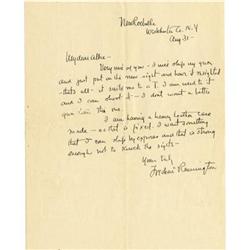 New Rochelle
Westchester Co. N.Y
Aug 31-
My dear Allie -
Very nice of you - I will ship my gun
and just put on the new sight and have it sighted
-thats all- it suits me to a T. I am used to it
and I can shoot it - I dont want a better
gun than this one.
I am having a heavy leather case
made - as that is fixed. I want something
that I can ship by express and that is strong
enough not to knock the sights -
Yours truly,
Frederic Remington